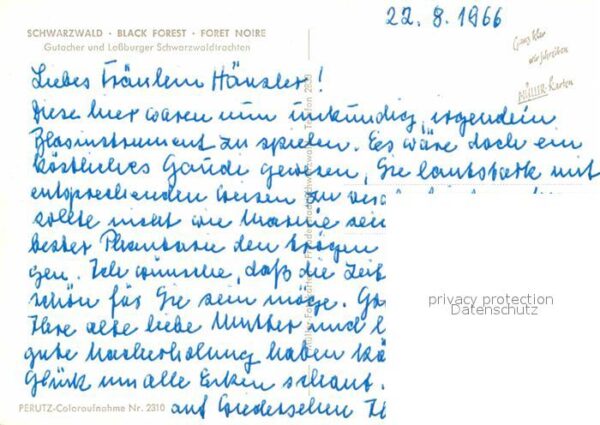 22. 8. 1966
SCHWARZWALD · BLACK FOREST · FORET NOIRE
Gutacher und Loßburger Schwarzwaldtrachten
Ganz klar
wir schreiben
MÜLLER-Karten
Liebes Fräulein Hänsler!
Diese hier waren nun unkundig, irgendein
Blasinstrument zu spielen. Es wäre doch ein
köstliches Gaudi gewesen, Sie lautstark mit
entsprechenden Weisen zu
sollte nicht wie Marine sein
bester Phantasie den
gen. Ich wünsche, daß die Zeit
schön für Sie sein möge.
Ihre alte liebe Mutter und
gute Nacherholung haben
Glück um alle Ecken schaut.
PERUTZ-Coloraufnahme Nr. 2310
auf Wiedersehen
privacy protection
Datenschutz